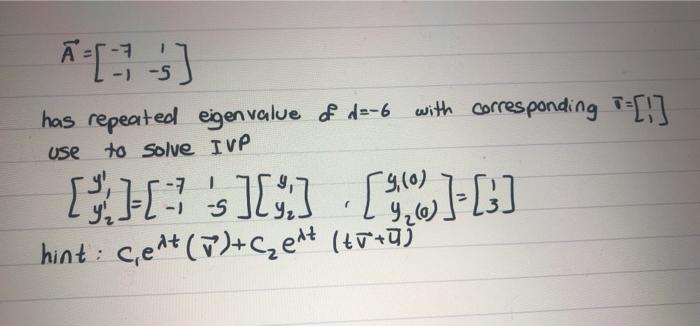 A⃗ = [-7 1
-1 -5]
has repeated eigenvalue of λ=-6 with corresponding v̄=[1 1]
use to solve IVP
[y₁' y₂']=[-7 1 -1 -5][y₁ y₂] , [y₁(0) y₂(0)]=[1 3]
hint : c₁e^λt (v⃗)+c₂e^λt (tv̄+ū)